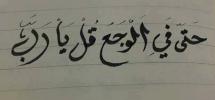 حَتىّ فيِ الْوَجَع قُل يَا رَبّ